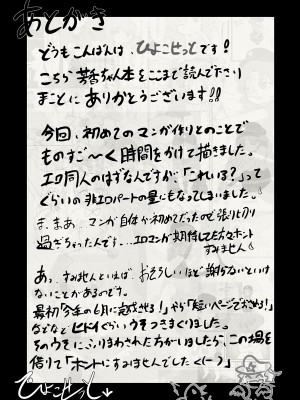 あとがき
どうもこんばんは、ひよこせっとです!
こちら芳香ちゃん本をここまで読んで下さり
まことにありがとうございます!!
今回、初めてのマンガ作りとのことで
ものすご〜く時間をかけて描きました。
エロ同人のはずなんですが、「これいる?」って
ぐらいの非エロパートの量にもなってしまいました。
ま、まぁ、マンガ自体が初めてだったので張り切り
過ぎちゃったんです…エロマンガ期待してた方なホント
すみません
あっ、すみませんといえば、おそろしいほど謝らないといけ
ないことがあるのです。
最初「今年の6月に完成させる!」やら「短いページでおさめる!」
などなどヒドイぐらいウソつきまくりました。
そのウソにふりまわされた方がいましたら、この場を
借りて「ホントにすみませんでした<(_ _)」
ひよこせっと